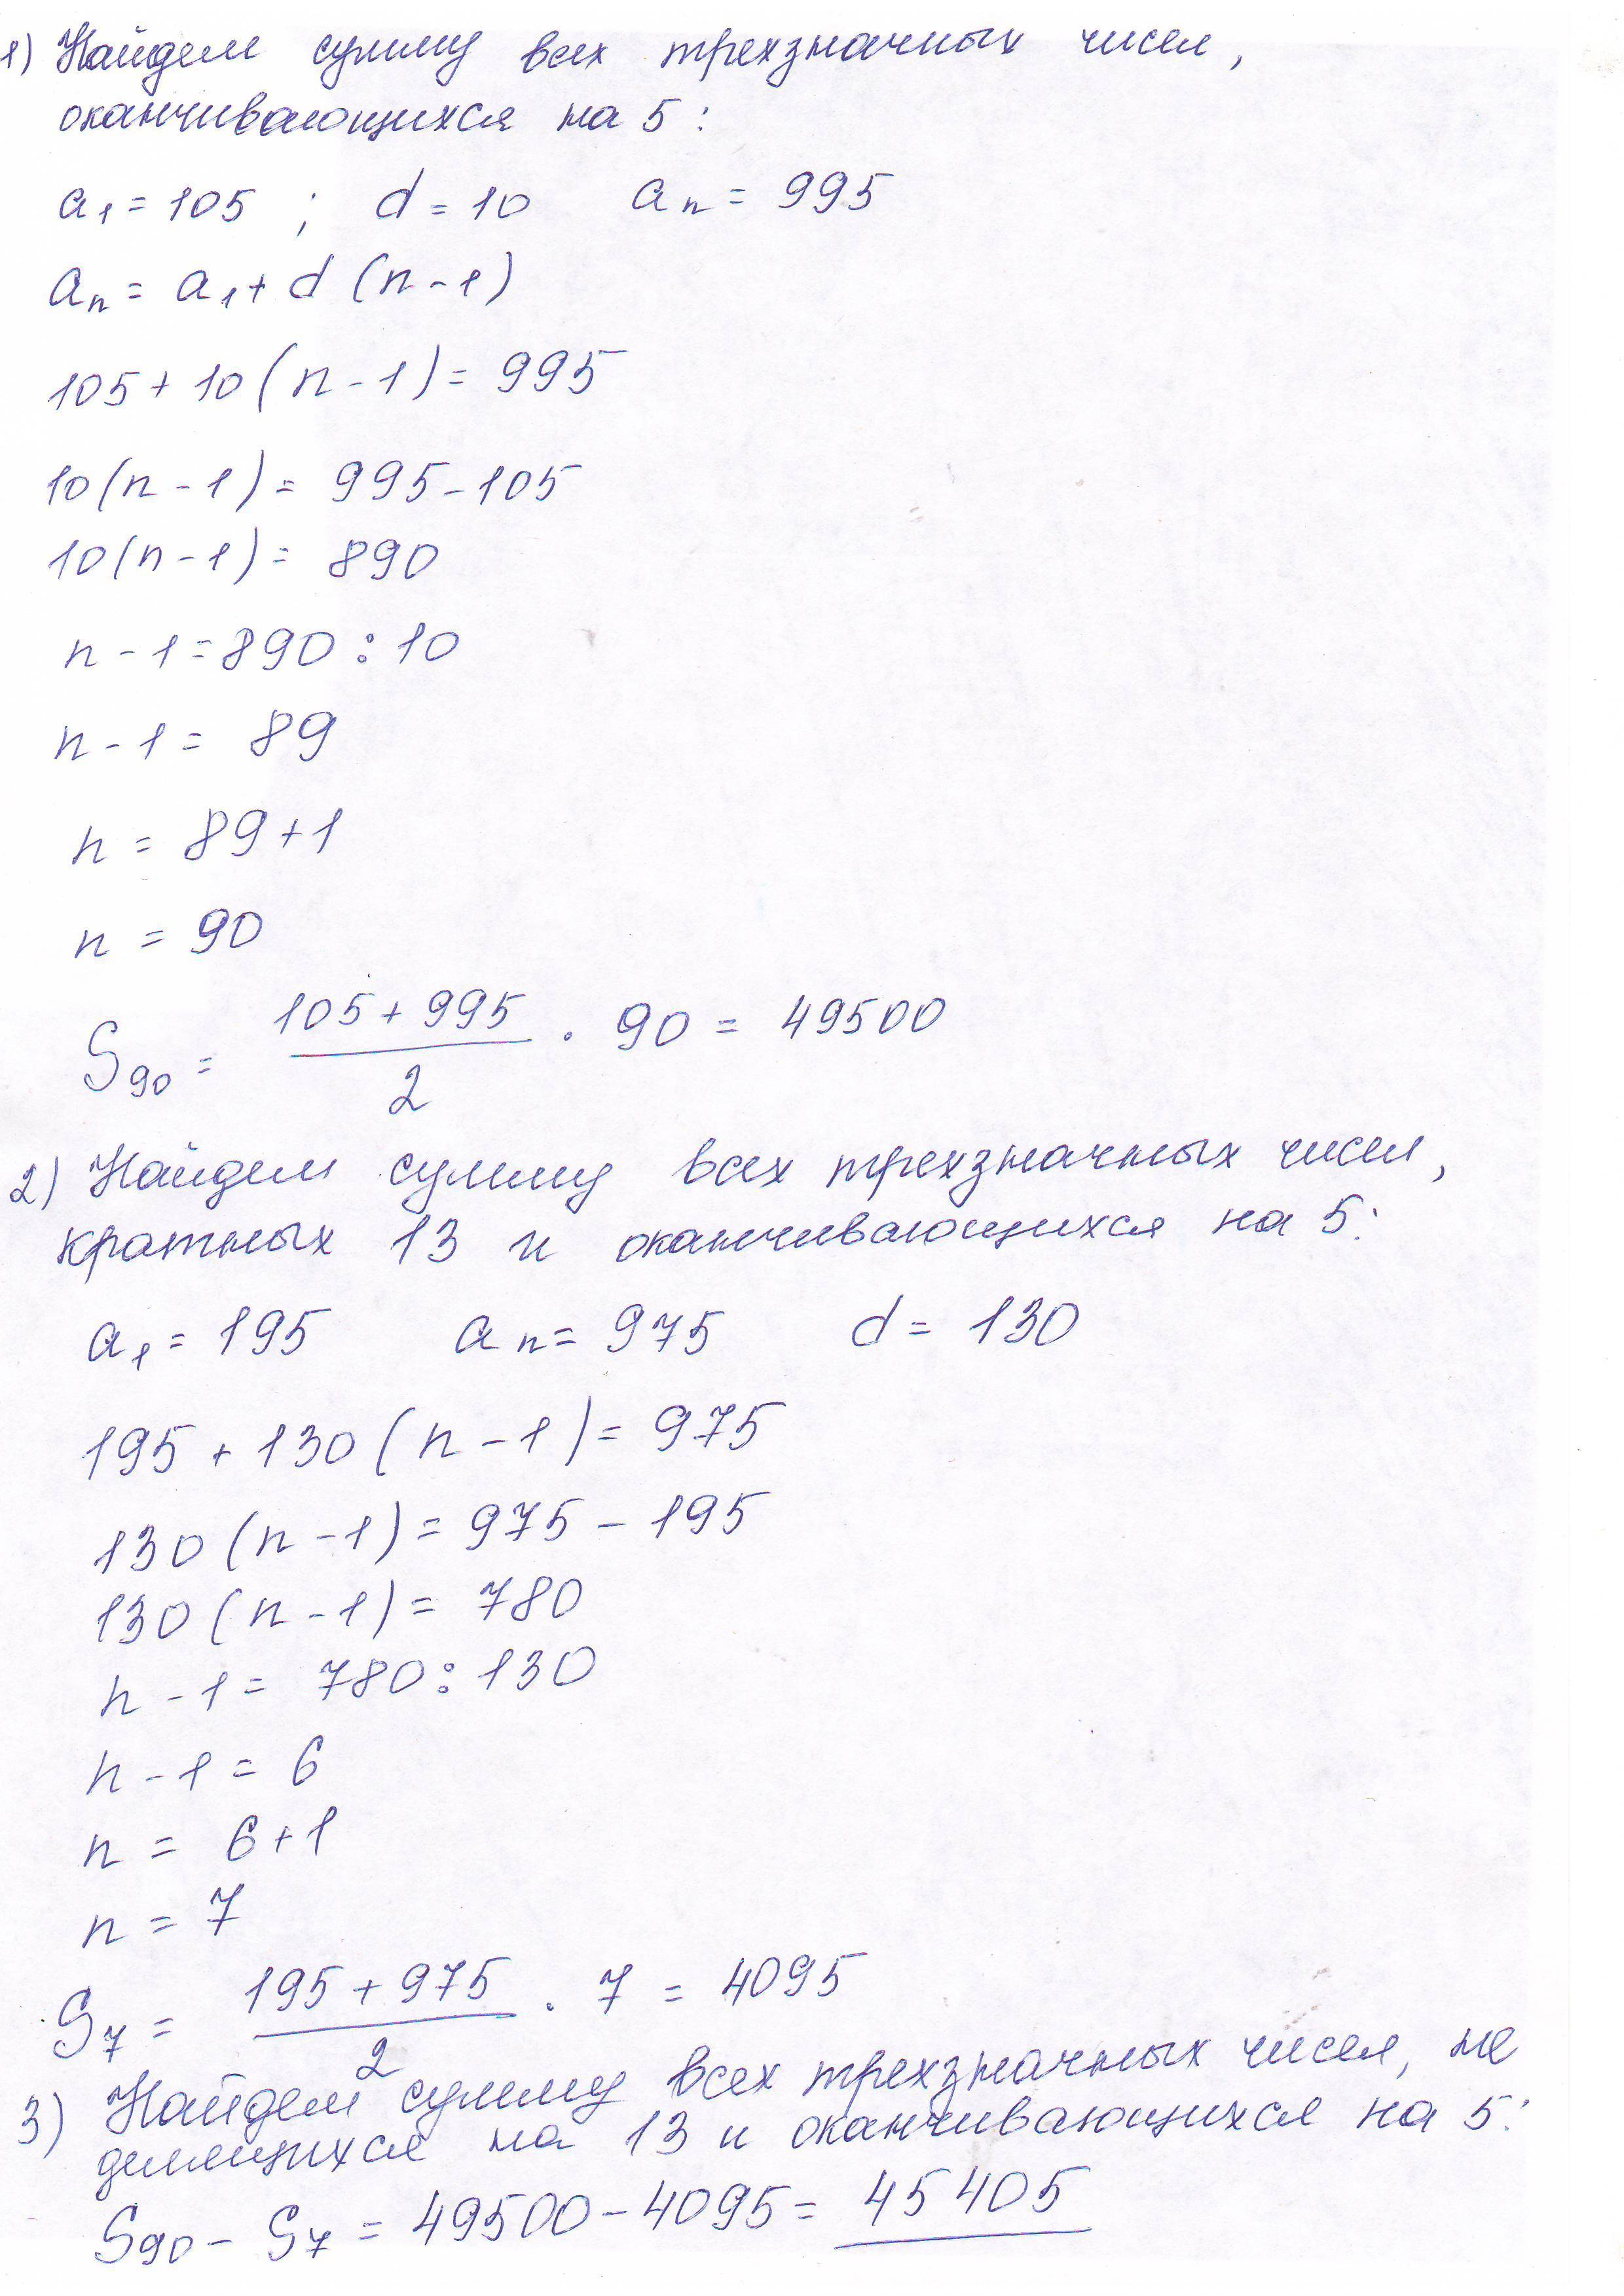 1) Найдем сумму всех трехзначных чисел,
оканчивающихся на 5:
a₁ = 105 ; d = 10 aₙ = 995
aₙ = a₁ + d (n - 1)
105 + 10 (n - 1) = 995
10 (n - 1) = 995 - 105
10 (n - 1) = 890
n - 1 = 890 : 10
n - 1 = 89
n = 89 + 1
n = 90
S₉₀ = (105 + 995)/2 · 90 = 49500
2) Найдем сумму всех трехзначных чисел,
кратных 13 и оканчивающихся на 5:
a₁ = 195 aₙ = 975 d = 130
195 + 130 (n - 1) = 975
130 (n - 1) = 975 - 195
130 (n - 1) = 780
n - 1 = 780 : 130
n - 1 = 6
n = 6 + 1
n = 7
S₇ = (195 + 975)/2 · 7 = 4095
3) Найдем сумму всех трехзначных чисел, не
делящихся на 13 и оканчивающихся на 5:
S₉₀ - S₇ = 49500 - 4095 = 45405